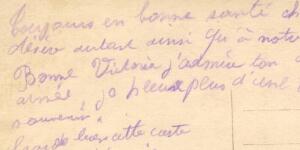 Toujours en bonne santé ch
désire autant ainsi qu'à notre
Bonne Victoria j'admire ton
armée je pleure plus d'une f
souvenir
cette carte